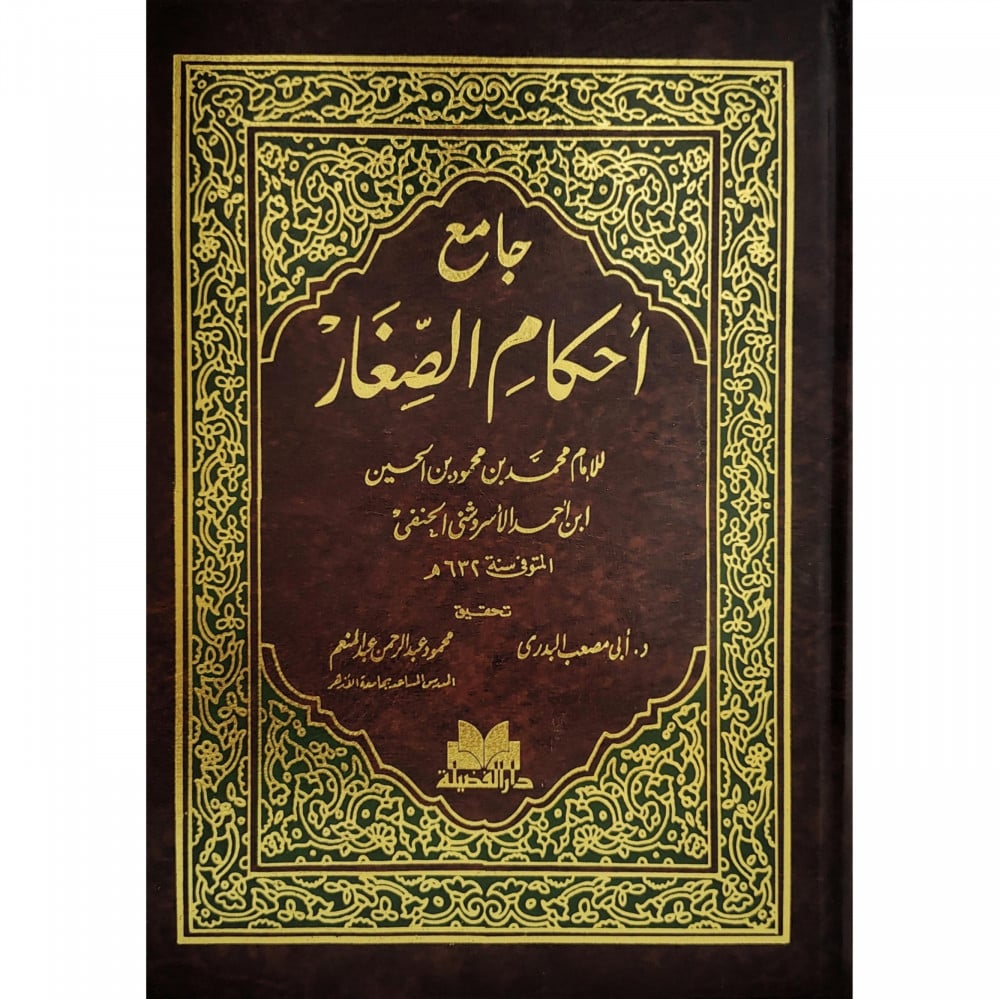 جامع
أحكامِ الصِّغَارْ
للإمام محمَّد بن محمود بن الحسين
ابن أحمد الأسروشنى الحنفى
المتوفى سنة ٦٣٢ هـ
تحقيق
د. أبى مصعب البدرى
محمود عبد الرحمن عبد المنعم
المدرس المساعد بجامعة الأزهر
دار الفضيلة